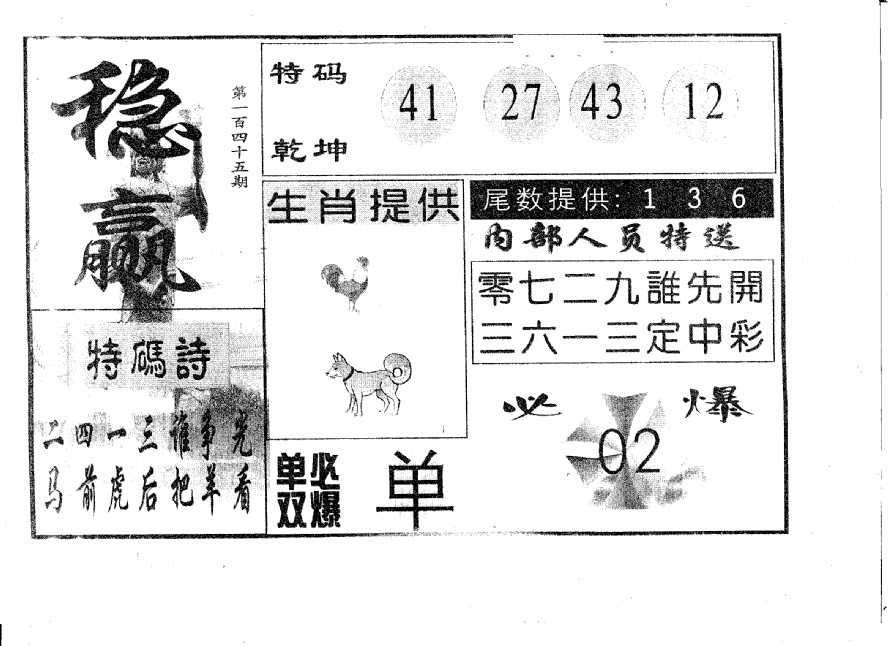 稳赢
第一百四十五期
特码
乾坤
41 27 43 12
生肖提供
尾数提供: 1 3 6
内部人员特送
零七二九誰先開
三六一三定中彩
特碼詩
二四一三谁争先
马前虎后把羊看
单双
必爆
单
必爆
02